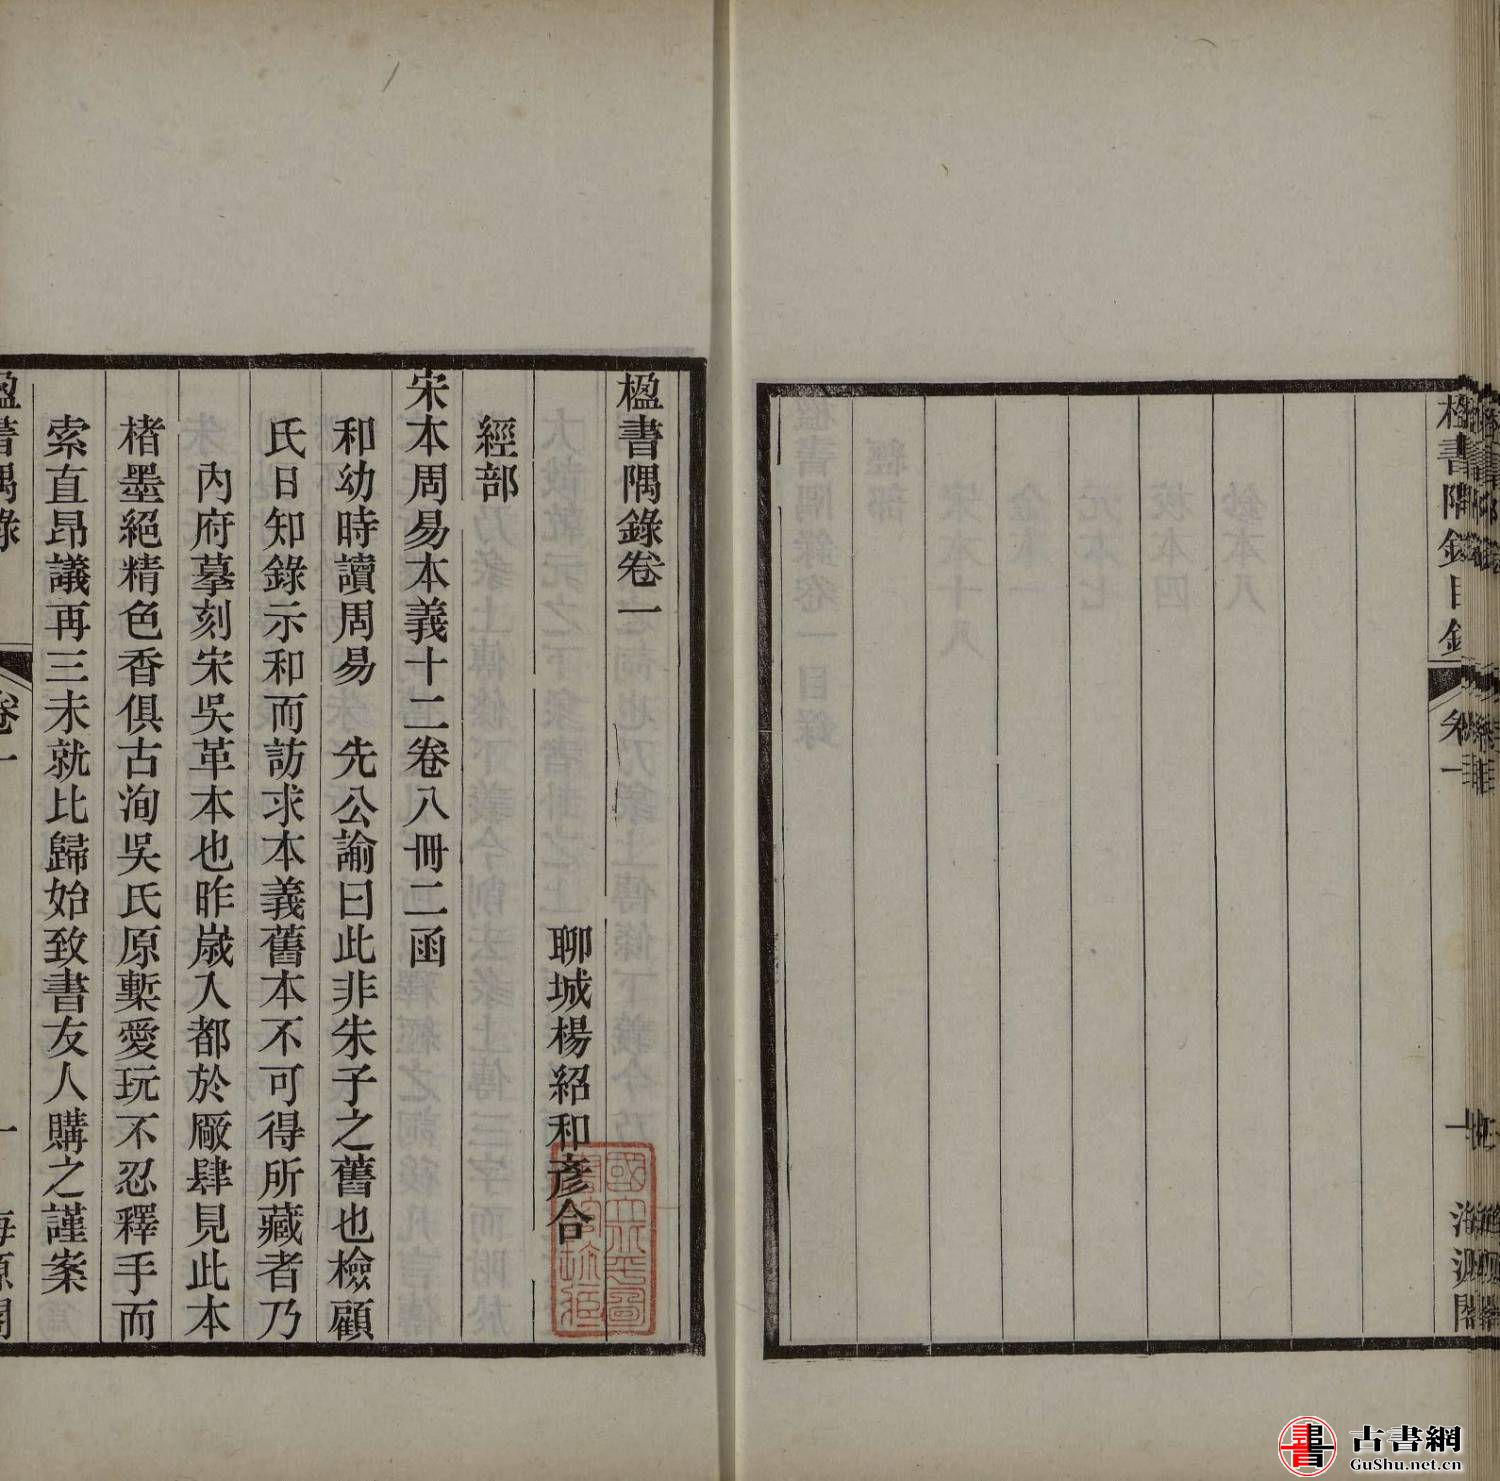 楹書隅錄卷一
聊城楊紹和彥合
經部
宋本周易本義十二卷八冊二函
和幼時讀周易　先公諭曰此非朱子之舊也檢顧
氏日知錄示和而訪求本義舊本不可得所藏者乃
內府摹刻宋吳革本也昨歲入都於厰肆見此本
楮墨絕精色香俱古洵吳氏原槧愛玩不忍釋手而
索直昂議再三未就比歸始致書友人購之謹案
卷一
一
海源閣
古書網
GuShu.net.cn